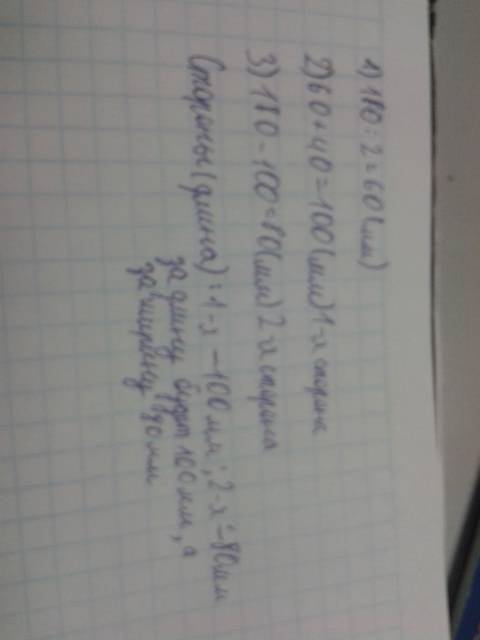 1) 180 : 2 = 60 (мм)
2) 60 + 40 = 100 (мм) 1-х сторона
3) 180 - 100 = 80 (мм) 2 х сторона
Стороны (длина): 1-х - 100 мм; 2-х - 80 мм
за длину будет 100 мм, а
за ширину 80 мм